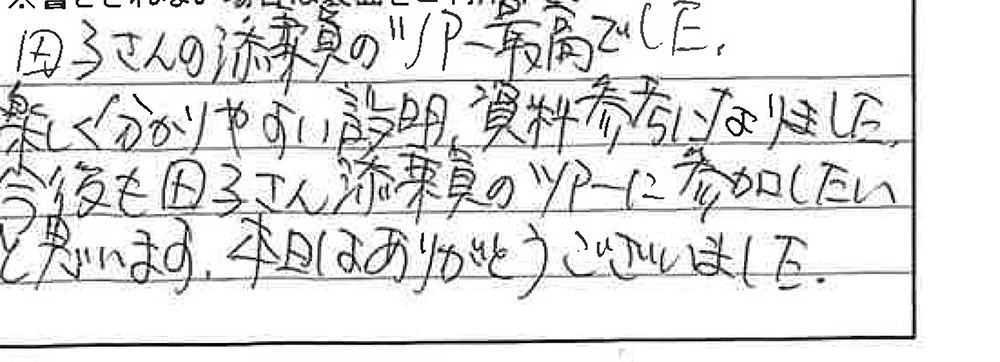 田子さんの添乗員のツアー最高でした.
楽しく分かりやすい説明、資料参考になりました.
今後も田子さん添乗員のツアーに参加したい
と思います. 本日はありがとうございました.